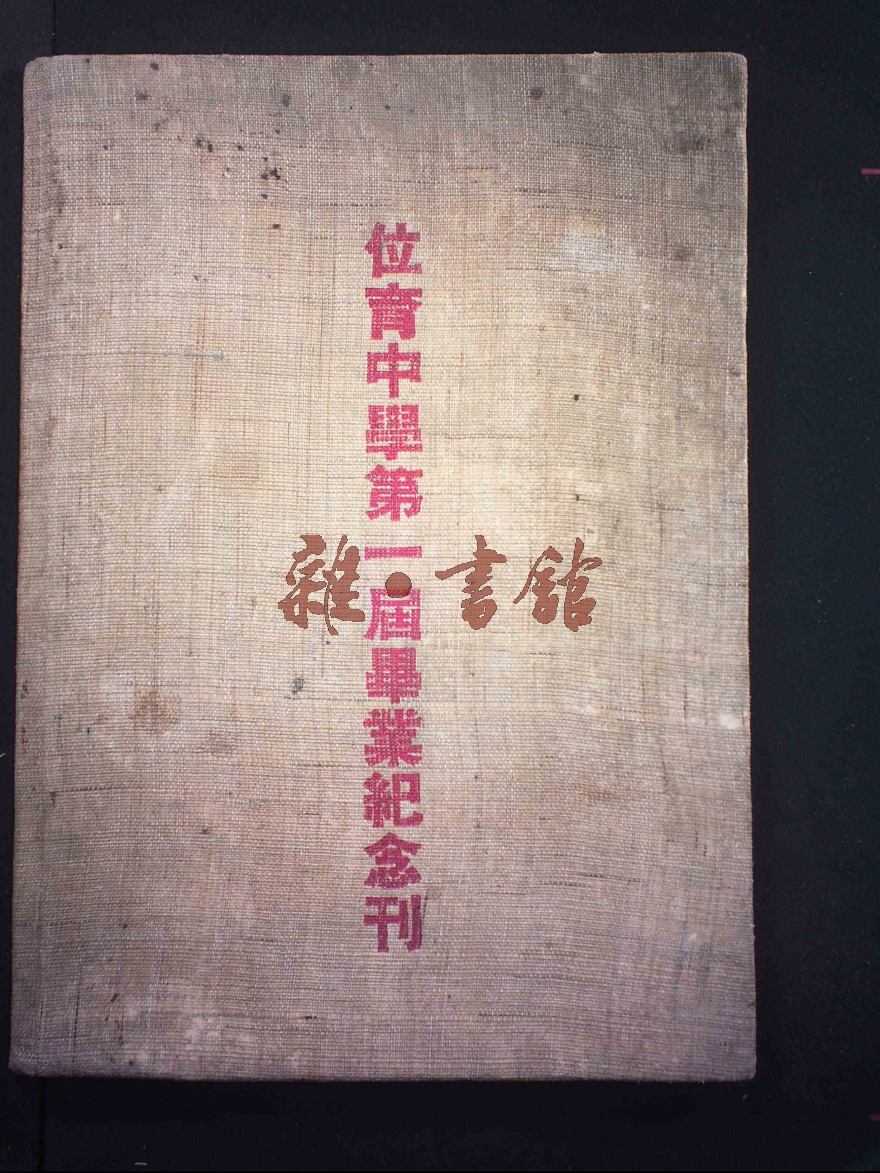 位育中學第一屆畢業紀念刊
雜·書館